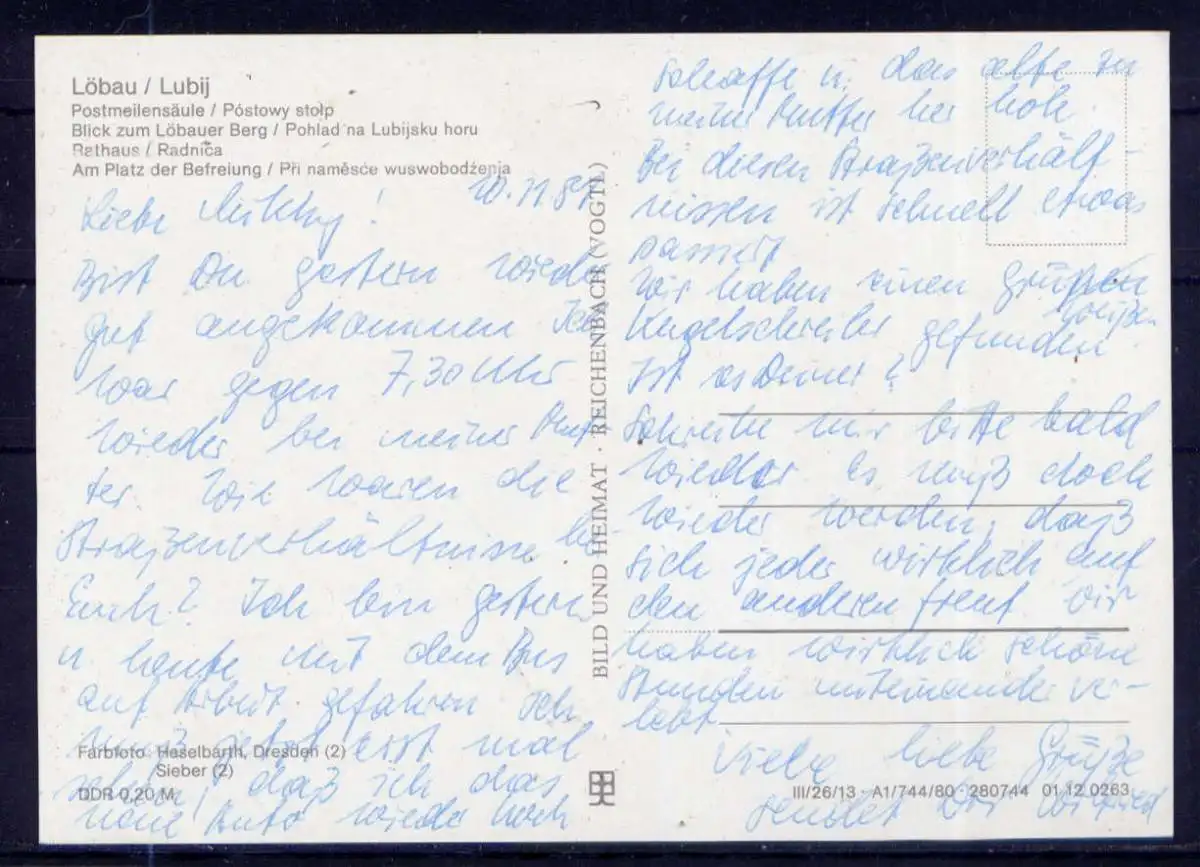 Löbau / Lubij
Postmeilensäule / Póstowy stołp
Blick zum Löbauer Berg / Pohlad na Lubijsku horu
Rathaus / Radnica
Am Platz der Befreiung / Při naměsće wuswobodźenja
10.11.81
Liebe !
Bist Du gestern wieder
gut angekommen Ich
war gegen 7,30 Uhr
wieder bei meiner Mut
ter. Wie waren die
Straßenverhältnisse bei
Euch? Ich bin gestern
u heute mit dem Bus
auf Arbeit gefahren Ich
muß jetzt erst mal
sehen, daß ich das
neue Auto wieder hoch
Farbfoto Heselbarth, Dresden (2)
Sieber (2)
DDR 0,20 M
BILD UND HEIMAT · REICHENBACH (VOGTL)
schaffe u. das alte zu
meine Mutter her hole.
Bei diesen Straßenverhält-
nissen ist schnell etwas
passiert
Wir haben einen grünen
weißen
Kugelschreiber gefunden
Ist es Deiner?
Schreibe mir bitte bald
wieder. Es muß doch
wieder werden, daß
sich jeder wirklich auf
den anderen freut. Wir
haben wirklich schöne
Stunden miteinander ver-
lebt
Viele liebe Grüße
sendet Dir
III/26/13 · A1/744/80 · 280744 01 12 0263